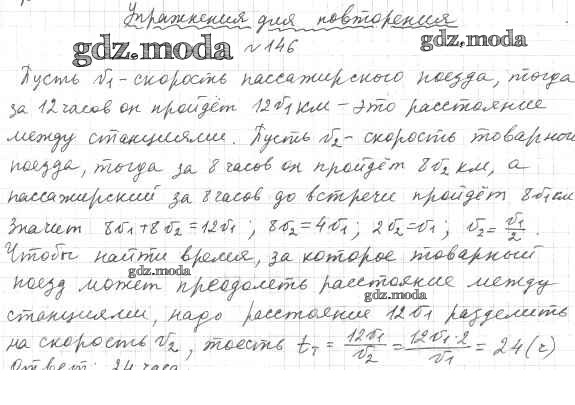 Упражнения для повторения
gdz.moda №146 gdz.moda
Пусть v₁ - скорость пассажирского поезда, тогда
за 12 часов он пройдёт 12v₁ км - это расстояние
между станциями. Пусть v₂ - скорость товарного
поезда, тогда за 8 часов он пройдёт 8v₂ км, а
пассажирский за 8 часов до встречи пройдёт 8v₁ км.
Значит 8v₁+8v₂=12v₁; 8v₂=4v₁; 2v₂=v₁; v₂=v₁/2.
Чтобы найти время, за которое товарный
gdz.moda
поезд может преодолеть расстояние между
gdz.moda
станциями, надо расстояние 12v₁ разделить
на скорость v₂, тоесть tₜ = 12v₁/v₂ = 12v₁·2/v₁ = 24 (ч)
Ответ: 24 часа